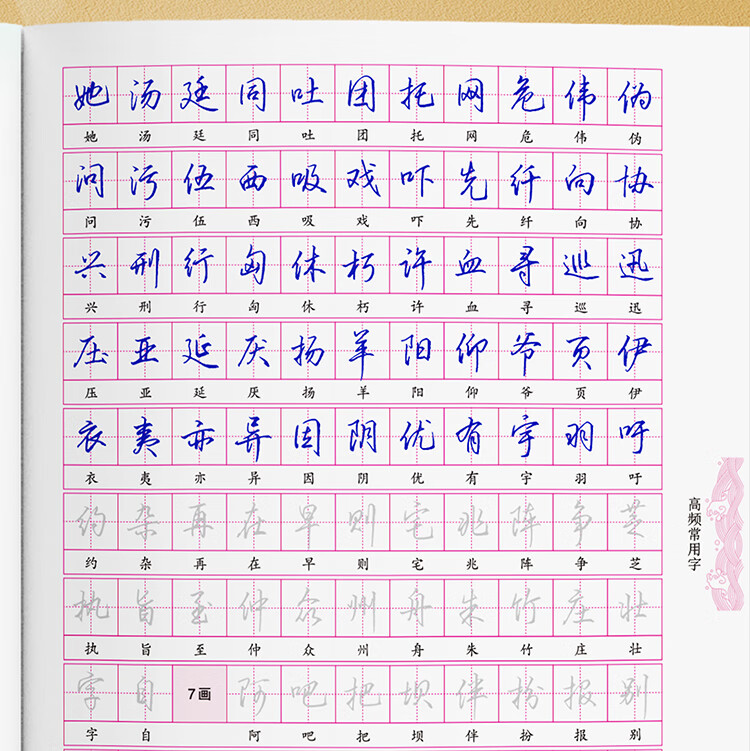 她 汤 廷 同 吐 团 托 网 危 伟 伪
她 汤 廷 同 吐 团 托 网 危 伟 伪
问 污 伍 西 吸 戏 吓 先 纤 向 协
问 污 伍 西 吸 戏 吓 先 纤 向 协
兴 刑 行 匈 休 朽 许 血 寻 巡 迅
兴 刑 行 匈 休 朽 许 血 寻 巡 迅
压 亚 延 厌 扬 羊 阳 仰 爷 页 伊
压 亚 延 厌 扬 羊 阳 仰 爷 页 伊
衣 夷 亦 异 因 阴 优 有 宇 羽 吁
衣 夷 亦 异 因 阴 优 有 宇 羽 吁
约 杂 再 在 早 则 宅 兆 阵 争 芝
约 杂 再 在 早 则 宅 兆 阵 争 芝
执 旨 至 仲 众 州 舟 朱 竹 庄 壮
执 旨 至 仲 众 州 舟 朱 竹 庄 壮
字 自 7画 阿 吧 把 坝 伴 扮 报 别
字 自 阿 吧 把 坝 伴 扮 报 别
高频常用字